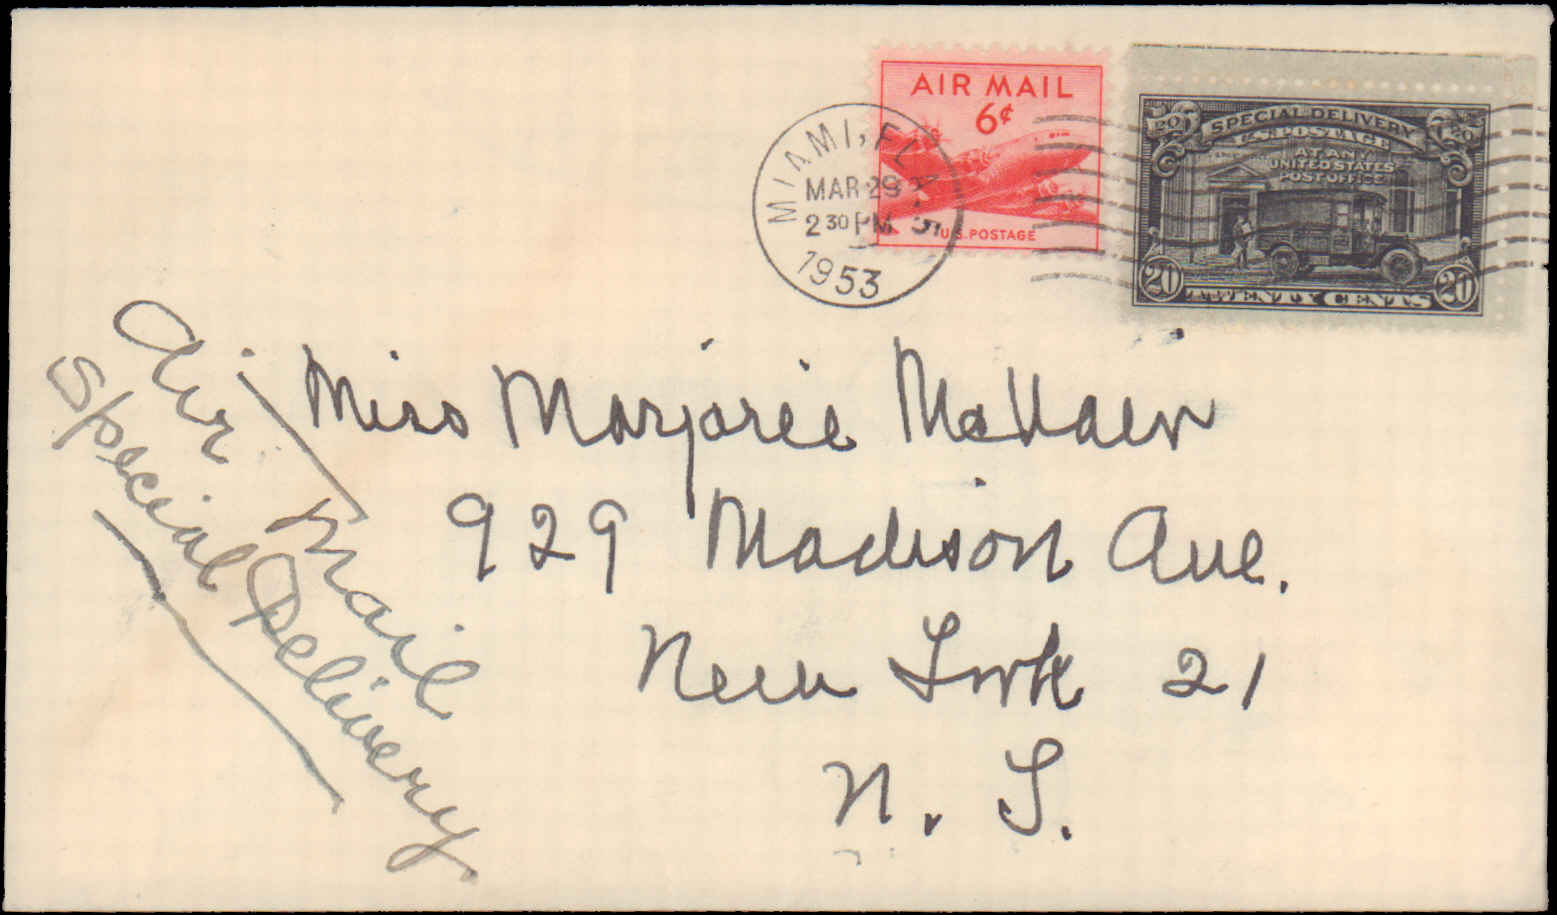 AIR MAIL
6¢
U.S. POSTAGE
SPECIAL DELIVERY
U.S. POSTAGE
AT ANY
UNITED STATES
POST OFFICE
20 20
20 TWENTY CENTS 20
MIAMI, FLA.
MAR 29
2 30 PM
1953
Air Mail
Special Delivery
Miss Marjorie McVain
929 Madison Ave.
New York 21
N. Y.